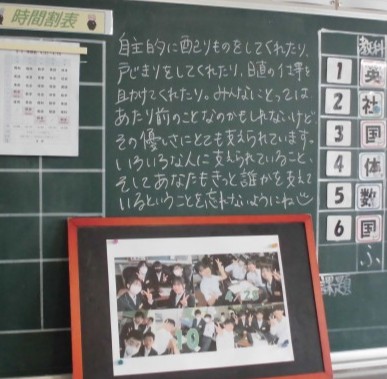 時間割表
自主的に配りものをしてくれたり、
戸じまりをしてくれたり、日直の仕事を
助けてくれたり。みんなにとっては
あたり前のことなのかもしれないけど
その優しさにとても支えられています。
いろいろな人に支えられていること、
そしてあなたもきっと誰かを支えて
いるということを忘れないようにね
教科
1 英
2 社
3 国
4 体
5 数
6 国
課題